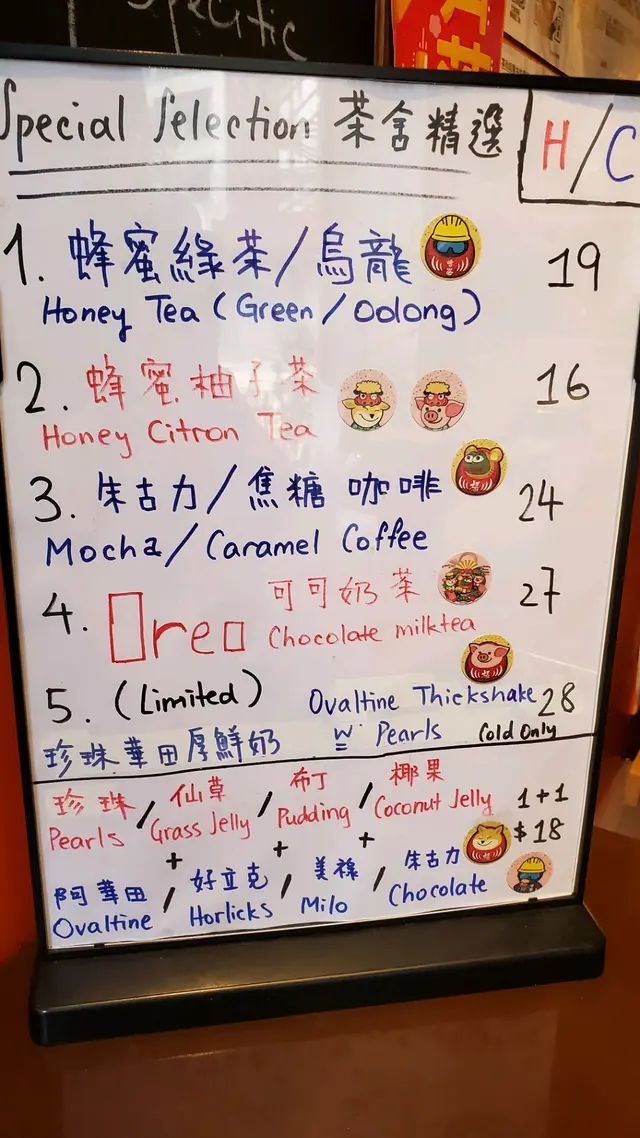 Specific
Special Selection 茶舍精選 H/C
1. 蜂蜜綠茶/烏龍 19
Honey Tea (Green/Oolong)
2. 蜂蜜柚子茶 16
Honey Citron Tea
3. 朱古力/焦糖 咖啡 24
Mocha/Caramel Coffee
4. Oreo 可可奶茶 27
Chocolate milktea
5. (Limited) Ovaltine Thickshake 28
珍珠華田厚鮮奶 W Pearls Cold Only
珍珠/仙草/布丁/椰果 1+1
Pearls Grass Jelly Pudding Coconut Jelly $18
+ + +
阿華田/好立克/美祿/朱古力
Ovaltine Horlicks Milo Chocolate